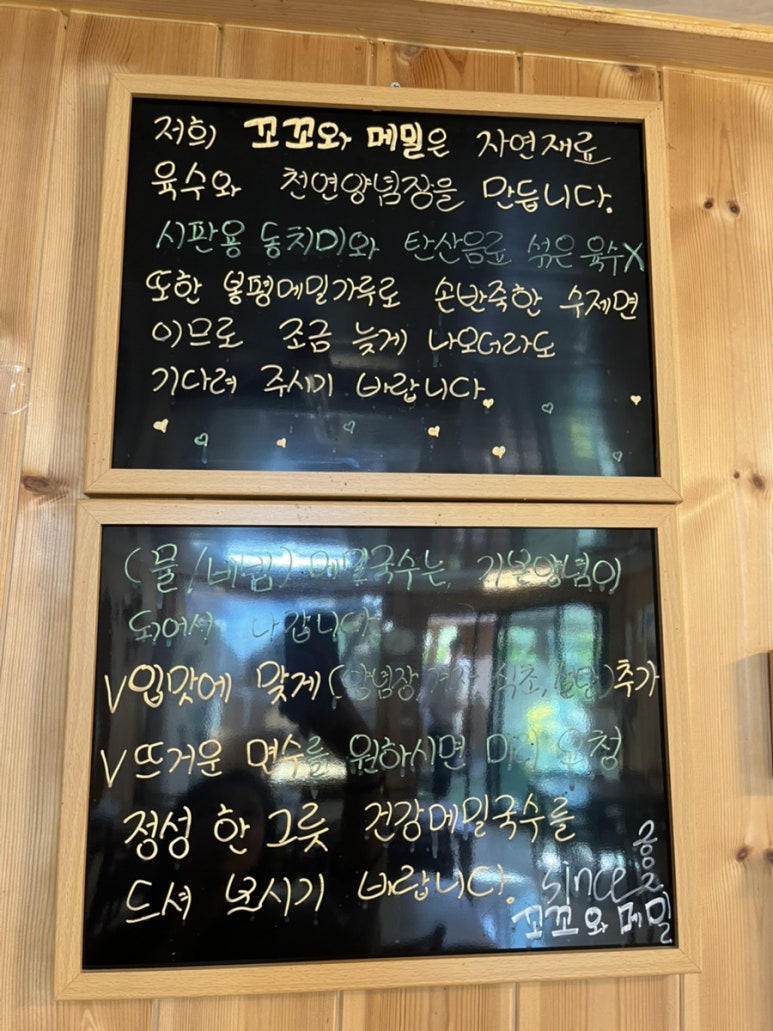 저희 꼬꼬와 메밀은 자연재료
육수와 천연양념장을 만듭니다.
시판용 동치미와 탄산음료 섞은 육수X
또한 봉평메밀가루로 손반죽한 수제면
이므로 조금 늦게 나오더라도
기다려 주시기 바랍니다.
(물/비빔) 메밀국수는, 기본양념이
되어서 나갑니다.
V입맛에 맞게(양념장, 겨자, 식초, 설탕)추가
V뜨거운 면수를 원하시면 미리 요청
정성 한그릇 건강메밀국수를
드셔 보시기 바랍니다. since
꼬꼬와메밀